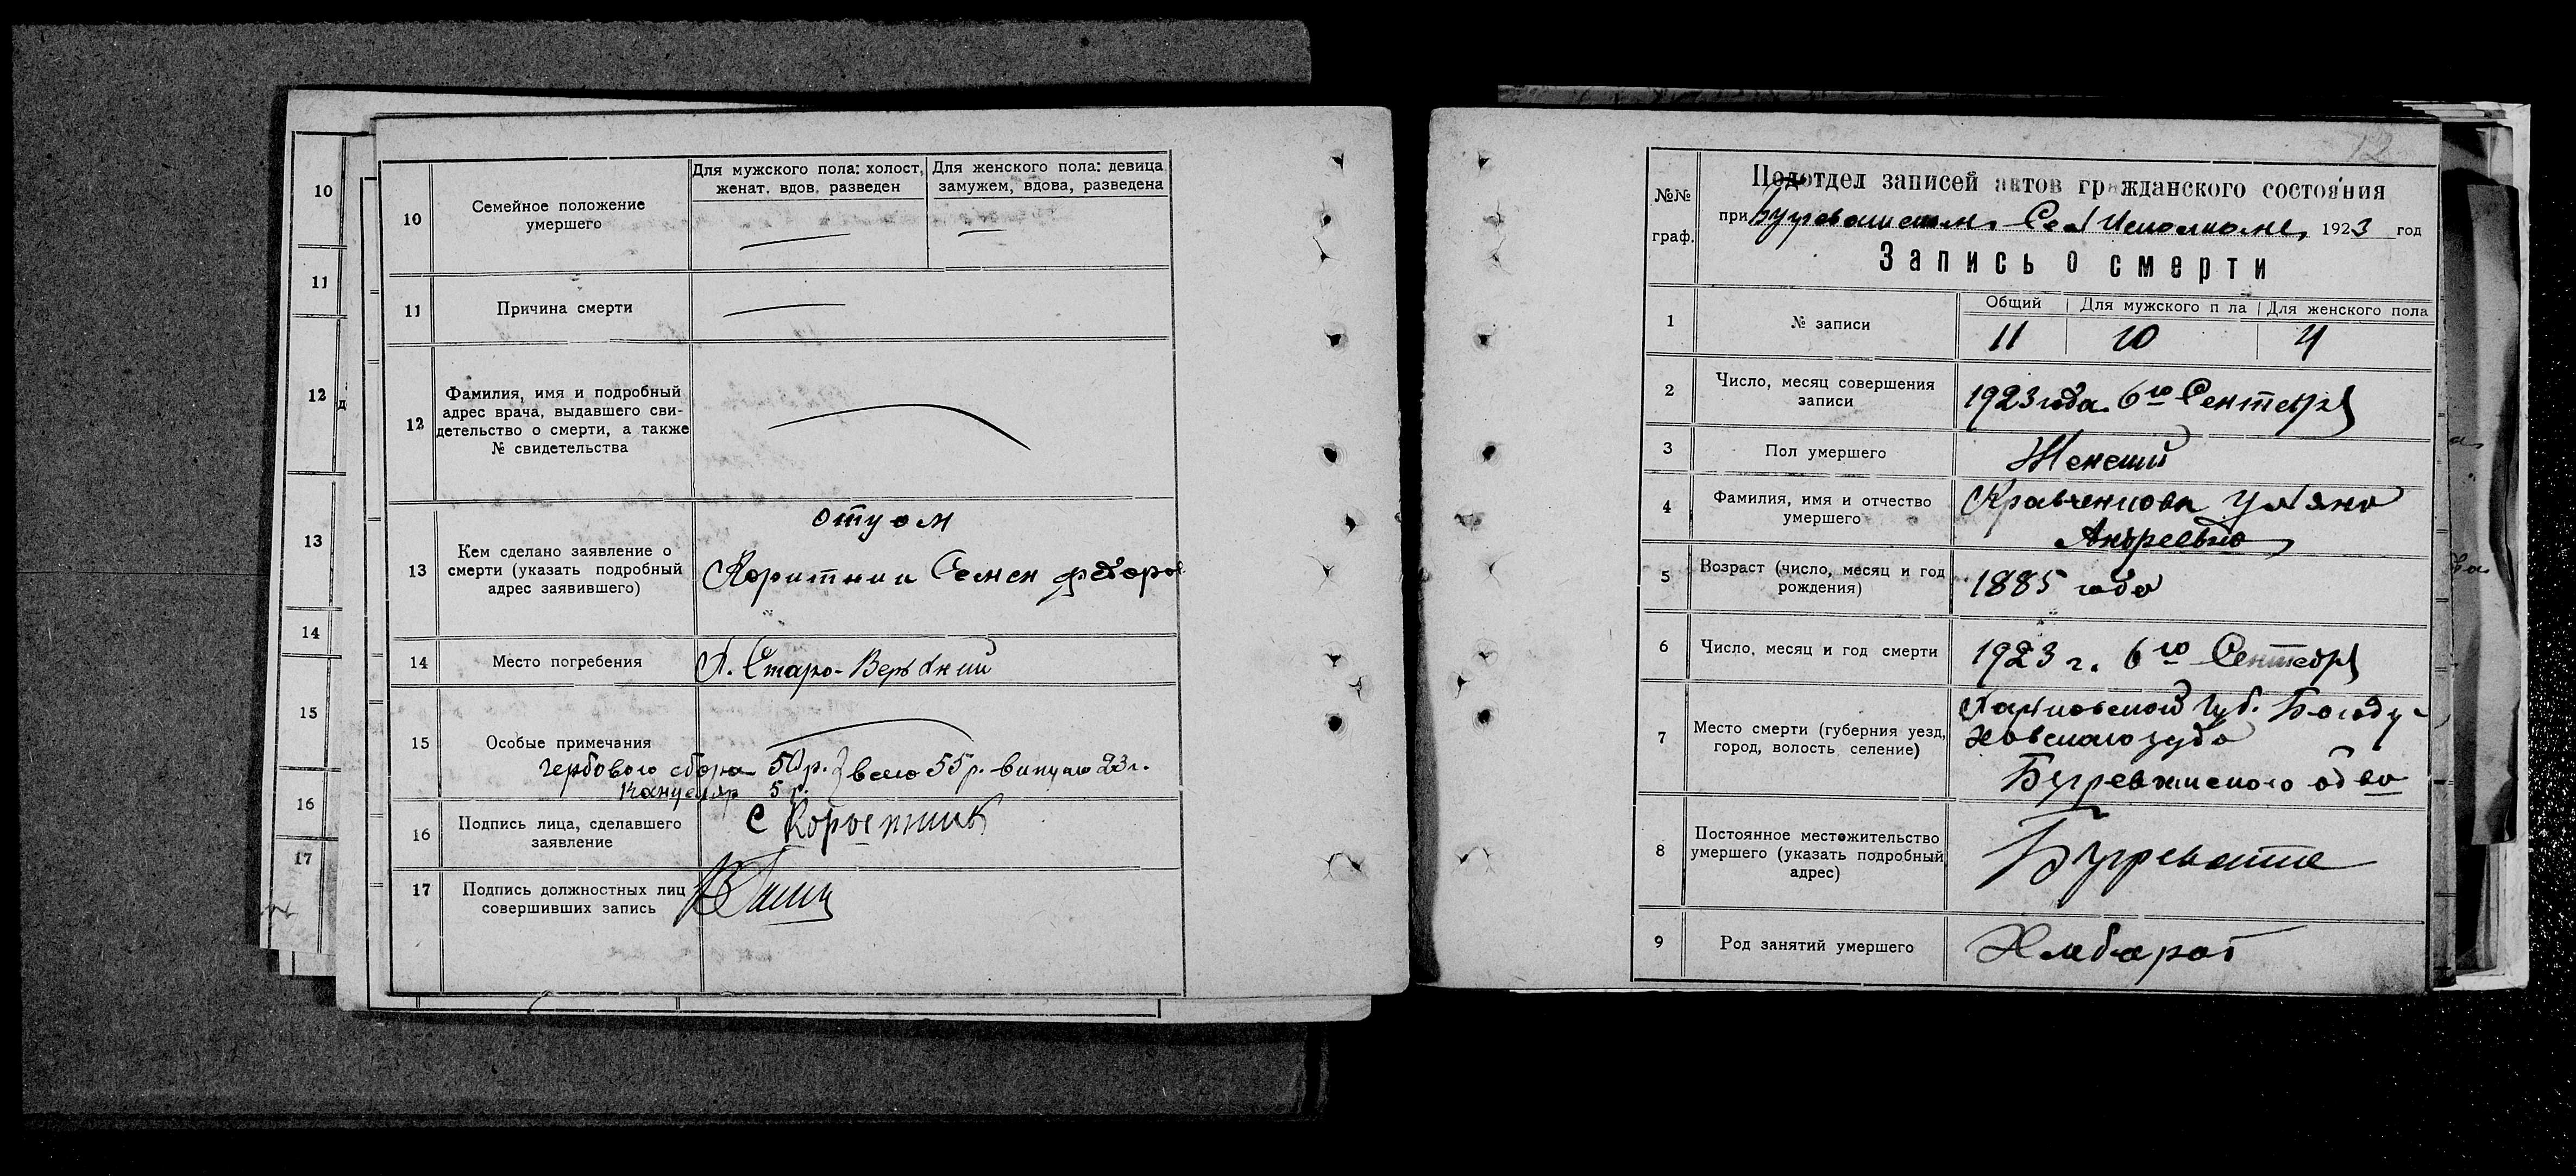 10
11
12
13
14
15
16
17
10
Семейное положение
умершего
Для мужского пола: холост,
женат, вдов, разведен
Для женского пола: девица
замужем, вдова, разведена
11
Причина смерти
12
Фамилия, имя и подробный
адрес врача, выдавшего сви-
детельство о смерти, а также
№ свидетельства
13
Кем сделано заявление о
смерти (указать подробный
адрес заявившего)
отцом
Семен Федоров
14
Место погребения
15
Особые примечания
гербового сбора 50 р. всего 55 р. выпуска 23 г.
Канцеляр 5 р.
16
Подпись лица, сделавшего
заявление
С
17
Подпись должностных лиц
совершивших запись
12
№№
граф.
Подотдел записей актов гражданского состояния
при 1923 год
Запись о смерти
1
№ записи
Общий
Для мужского п ла
Для женского пола
11
10
4
2
Число, месяц совершения
записи
1923 года 6го Сентебря
3
Пол умершего
Женский
4
Фамилия, имя и отчество
умершего
Кравченкова Уляна
Андреевна
5
Возраст (число, месяц и год
рождения)
1885 года
6
Число, месяц и год смерти
1923 г. 6го Сентебря
7
Место смерти (губерния уезд,
город, волость селение)
Харковской губ. Богоду-
ховского
8
Постоянное местожительство
умершего (указать подробный
адрес)
9
Род занятий умершего
Хлебароб